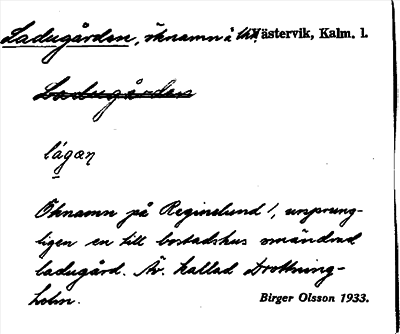 Ladugården, öknamn å Västervik, Kalm. l.
Ladugården
lágæn
Öknamn på Reginelund!, ursprung-
ligen en till bostadshus omändrad
ladugård. Äv. kallad Drottning-
holm. Birger Olsson 1933.